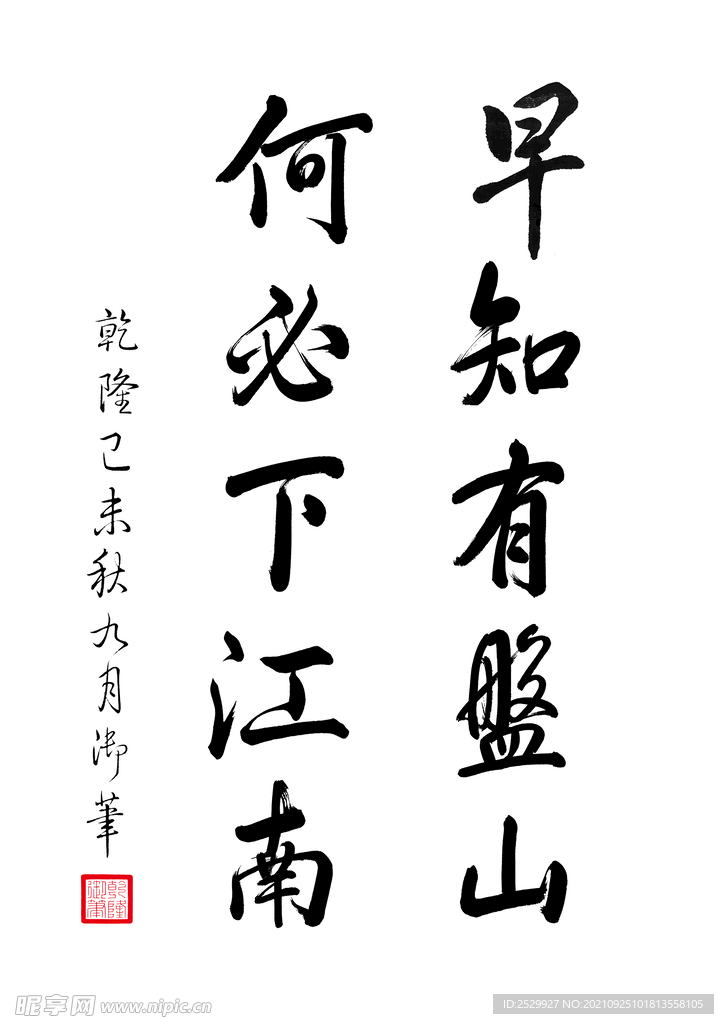 早知有盤山
何必下江南
乾隆己未秋九月御筆
乾隆御筆
昵享网 www.nipic.cn
ID:2529927 NO:20210925101813558105